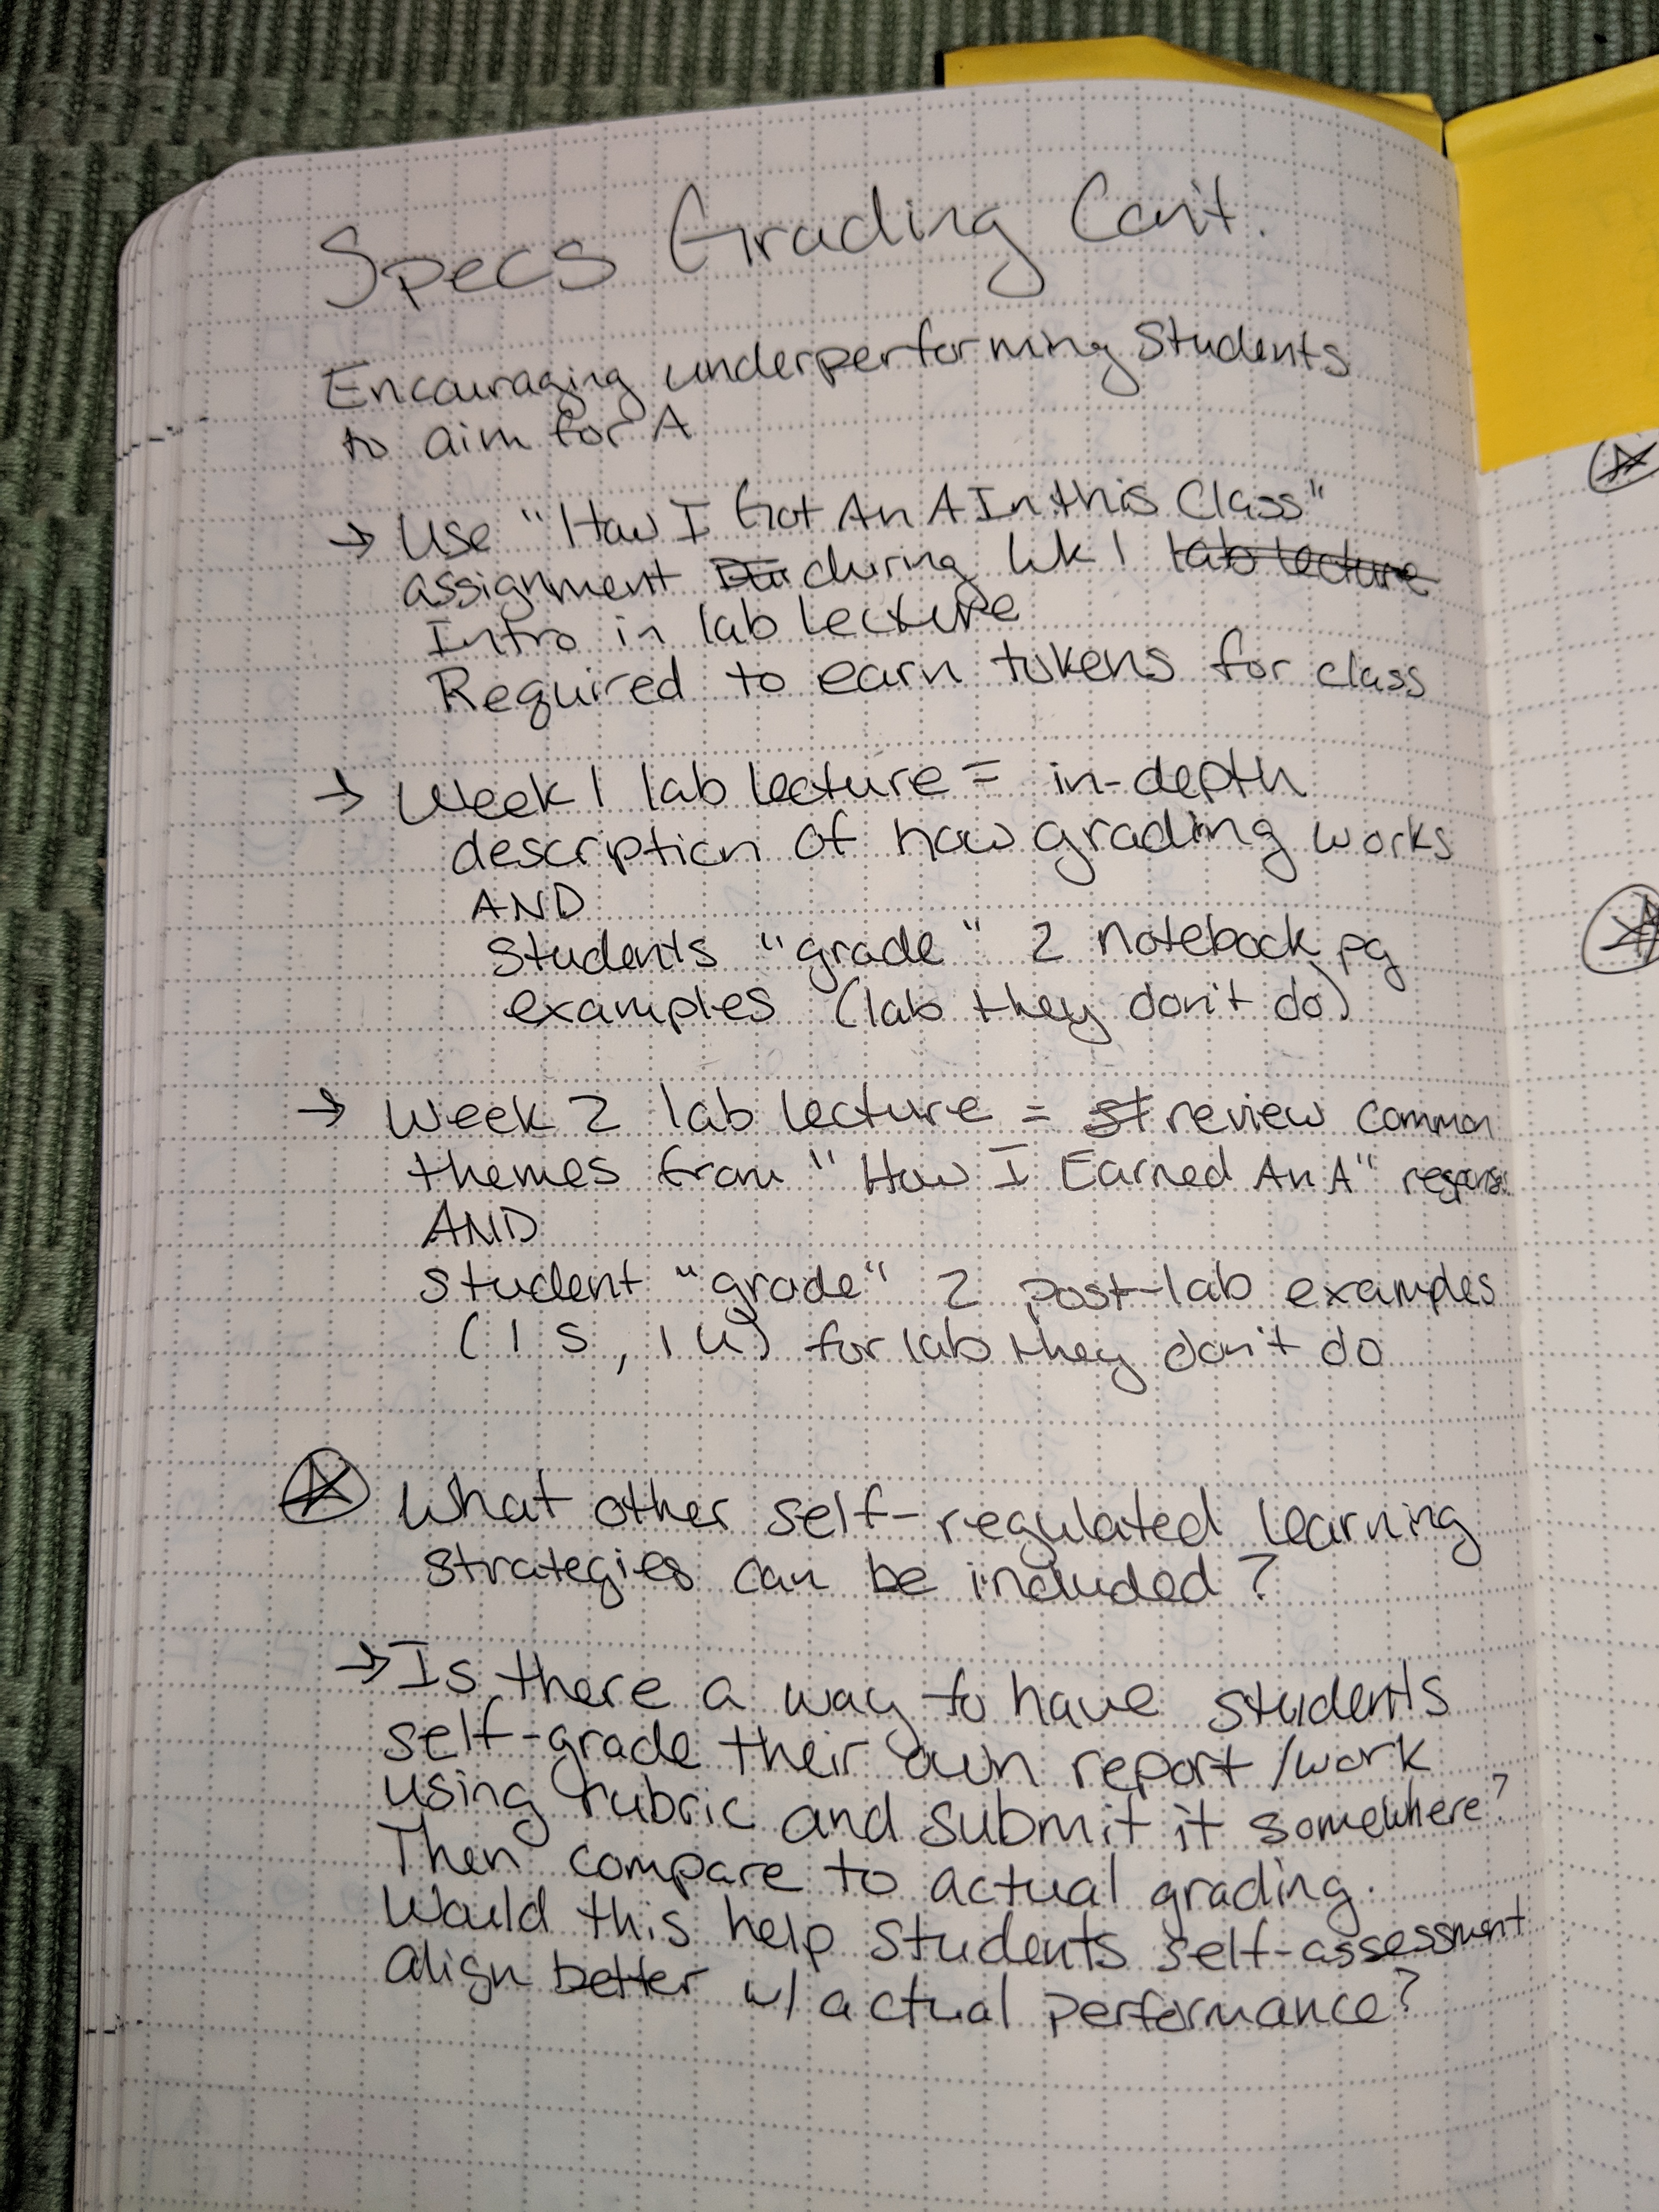 Specs Grading Con't.
Encouraging underperforming Students
to aim for A
→ Use "How I Got An A In this Class"
assignment during Wk 1 lab lecture
Intro in lab lecture
Required to earn tokens for class
→ Week 1 lab lecture = in-depth
description of how grading works
AND
students "grade" 2 notebook pg
examples (lab they don't do)
→ Week 2 lab lecture = st review common
themes from "How I Earned An A" respons.
AND
student "grade" 2 post-lab examples
(1 S, 1 U) for lab they don't do
What other self-regulated learning
strategies can be included?
→ Is there a way to have students
self-grade their own report/work
using rubric and submit it somewhere?
Then compare to actual grading.
Would this help students self-assessment
align better w/ actual performance?